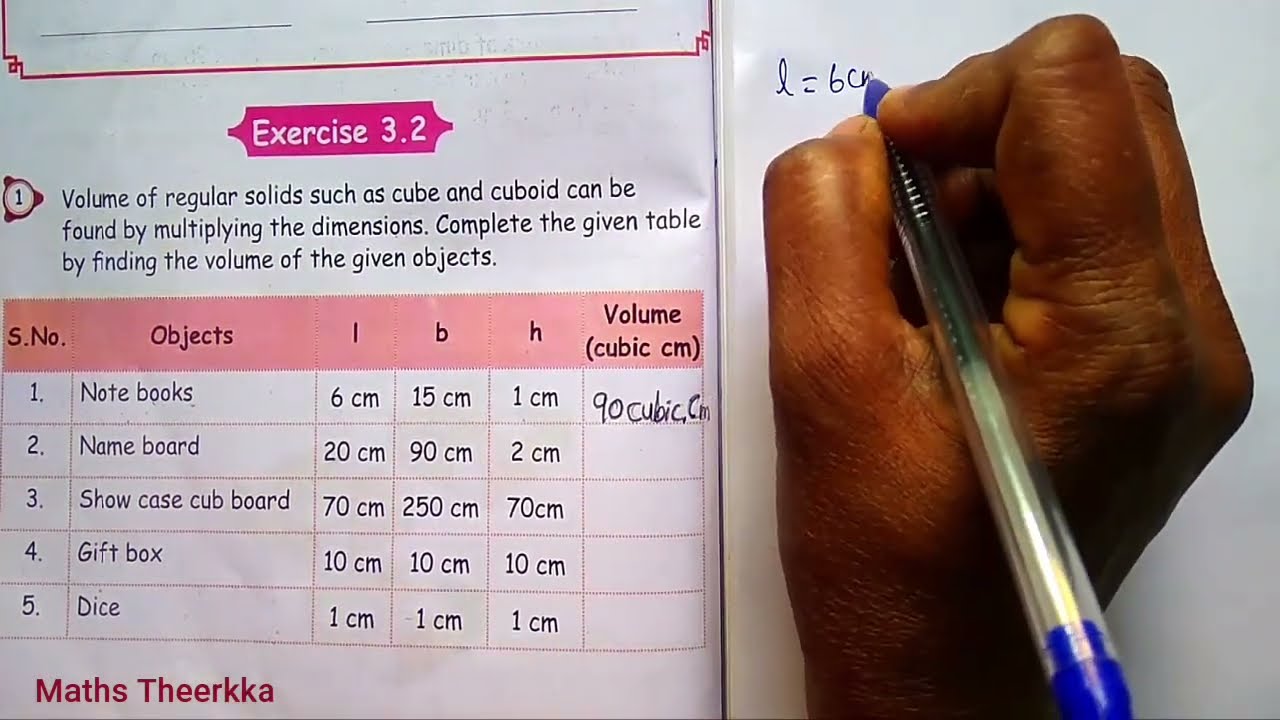 Exercise 3.2
1 Volume of regular solids such as cube and cuboid can be
found by multiplying the dimensions. Complete the given table
by finding the volume of the given objects.
S.No. Objects l b h Volume (cubic cm)
1. Note books 6 cm 15 cm 1 cm 90 cubic.Cm
2. Name board 20 cm 90 cm 2 cm
3. Show case cub board 70 cm 250 cm 70cm
4. Gift box 10 cm 10 cm 10 cm
5. Dice 1 cm 1 cm 1 cm
Maths Theerkka
l = 6cm